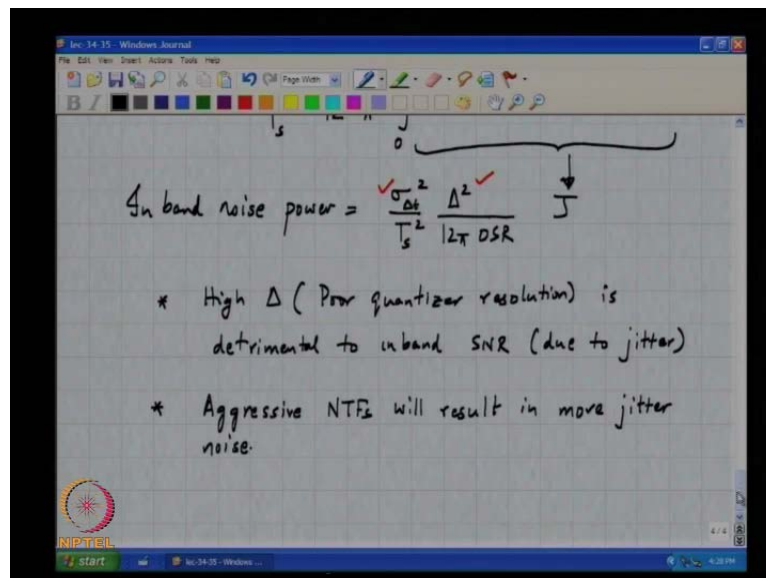 lec-34-35 - Windows Journal
File Edit View Insert Actions Tools Help
Page Width
B I
T_s 12 π
0
In band noise power = σ_Δt² / T_s² Δ² / 12π OSR J
* High Δ ( Poor quantizer resolution) is
detrimental to inband SNR (due to jitter)
* Aggressive NTFs will result in more jitter
noise.
4 / 4
NPTEL
start lec-34-35 - Windows ... 4:28 PM